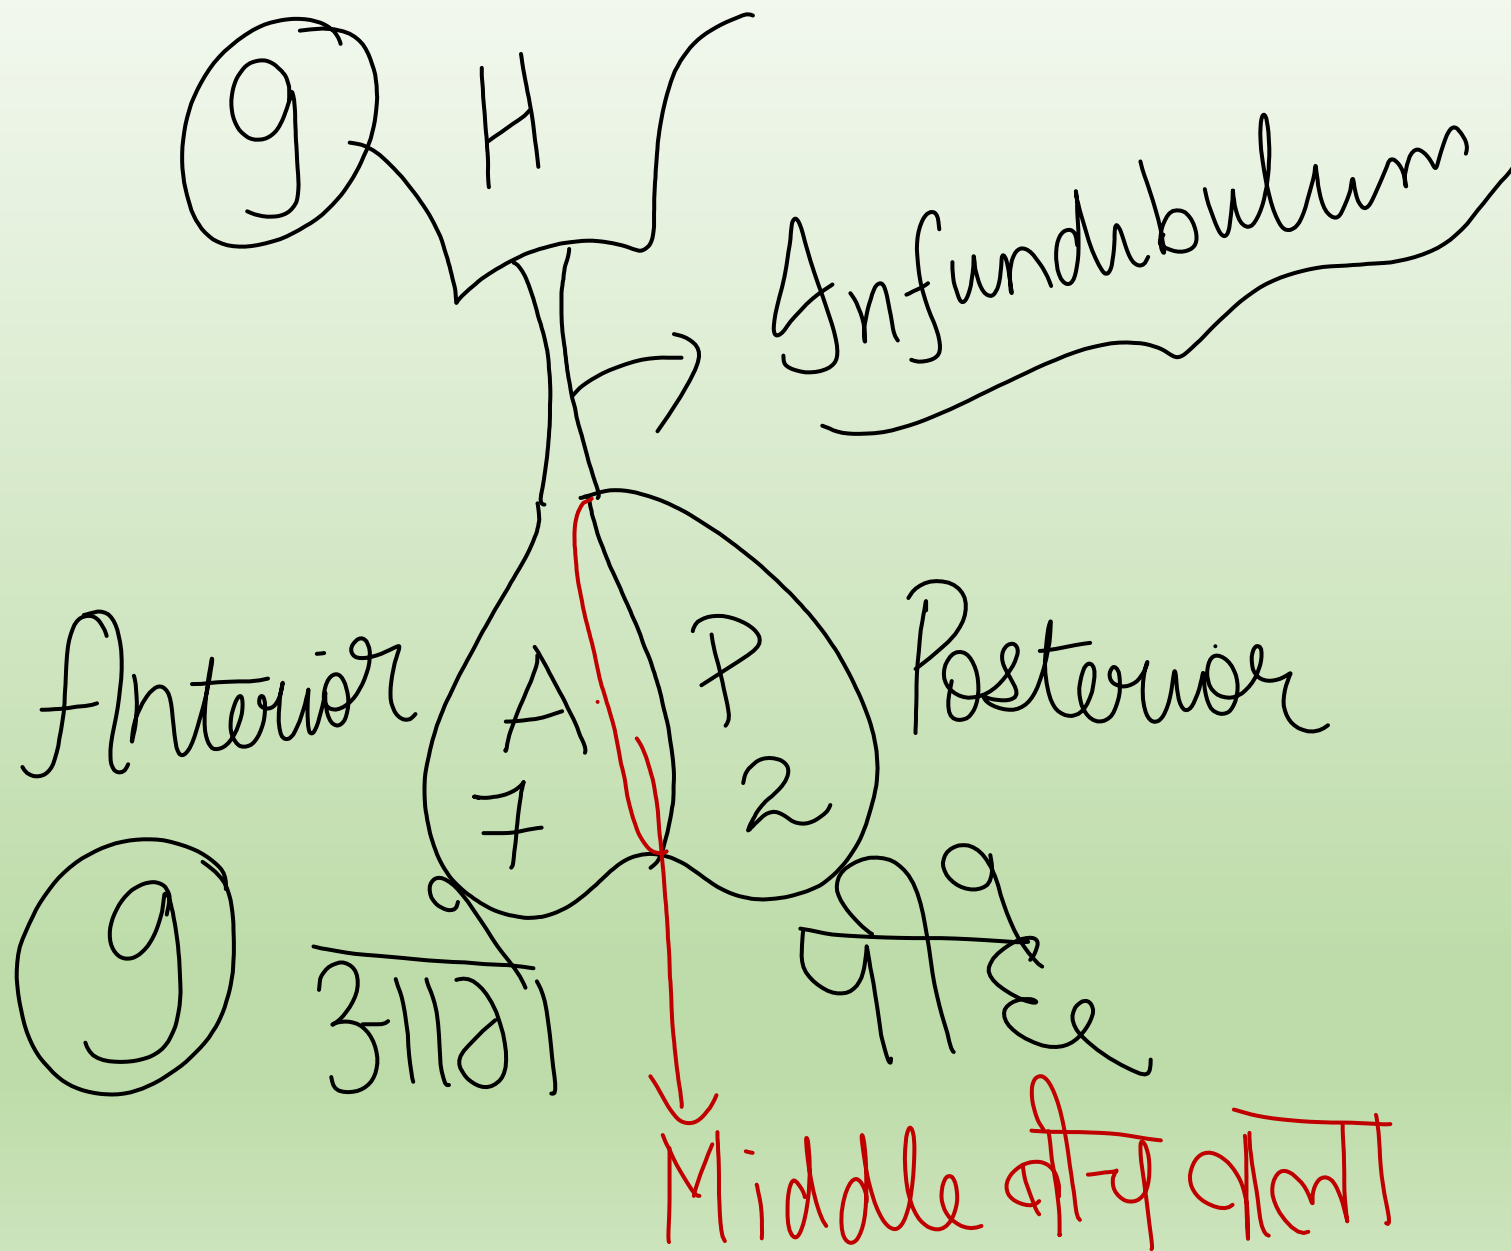 9
H
Infundibulum
Anterior
A
P
Posterior
7
2
9
आगे
पीछे
Middle बीच वाला